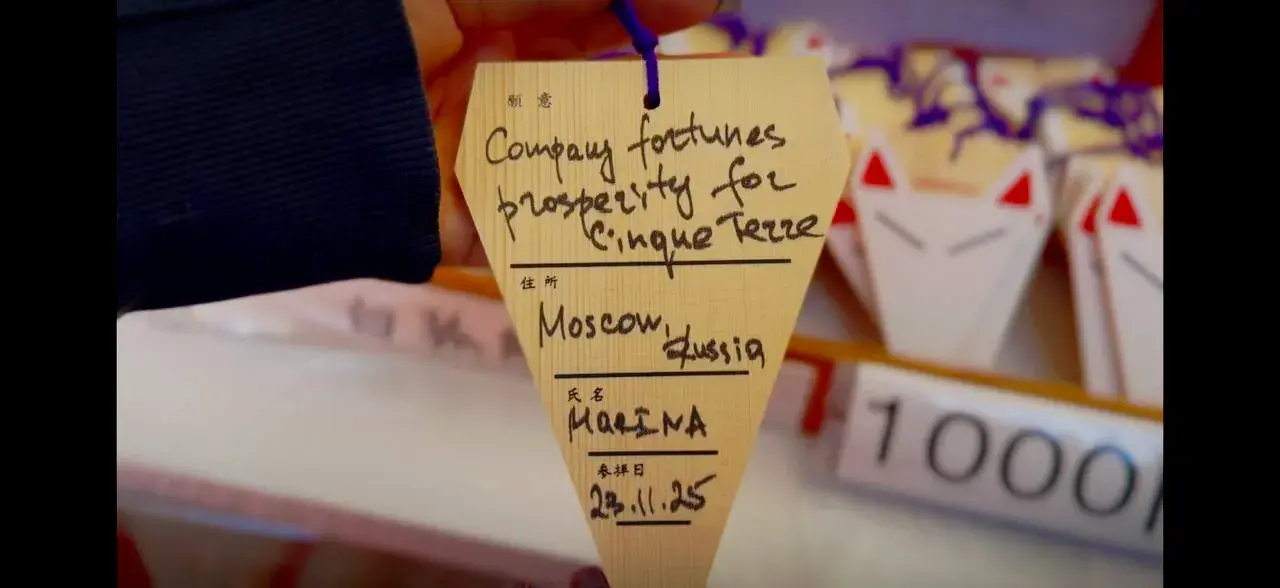 願意
Company fortunes
prosperity for
Cinque Terre
住所
Moscow,
Russia
氏名
MARINA
参拝日
23.11.25
1000